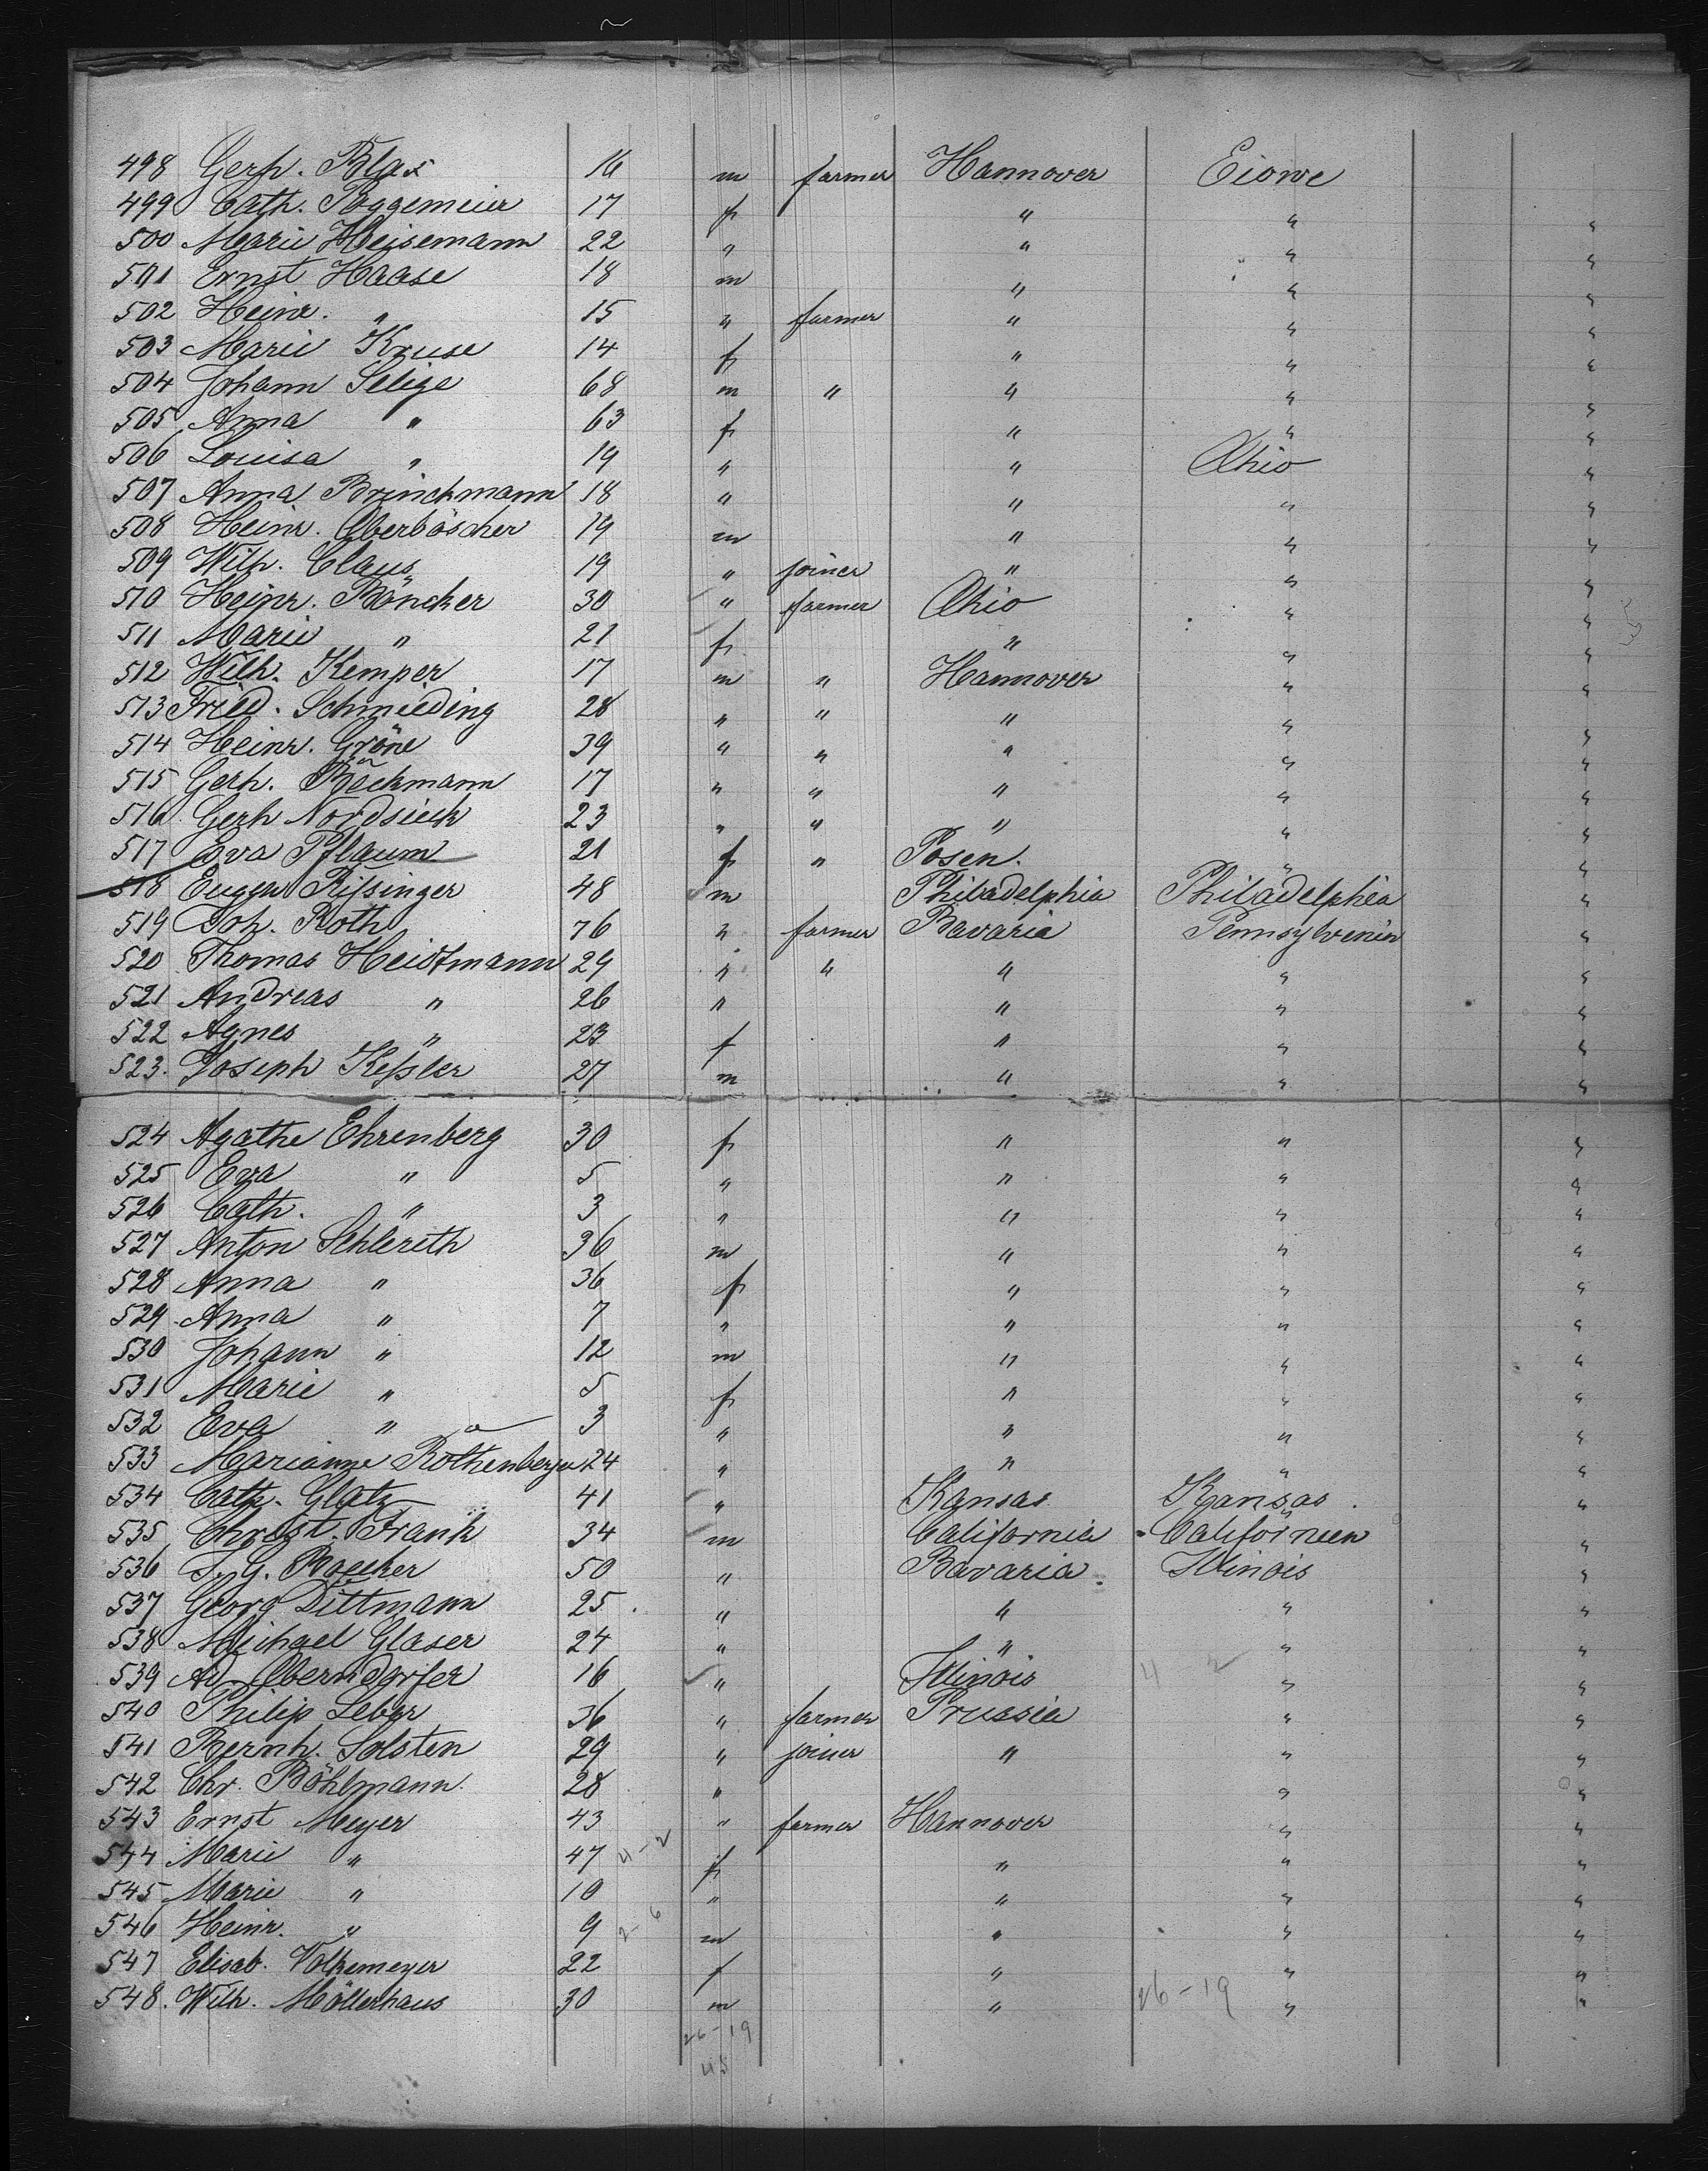 498 Gerh. Blas 16 m farmer Hannover Eiowe
499 Cath. Poggemeier 17 f " "
500 Marie Heisemann 22 " " " "
501 Ernst Haase 18 m " " "
502 Heinr. " 15 " farmer " " "
503 Marie Kruse 14 f " " "
504 Johann Selige 68 m " " " "
505 Anna " 63 f " " "
506 Louisa " 19 " " Ohio "
507 Anna Brinckmann 18 " " " "
508 Heinr. Oberböscher 19 m " " "
509 Wilh. Claus 19 " joiner " " "
510 Heinr. Böncker 30 " farmer Ohio " "
511 Marie " 21 f " " "
512 Wilh. Kemper 17 m " Hannover " "
513 Fried. Schmieding 28 " " " " "
514 Heinr. Gröne 39 " " " " "
515 Gerh. Böckmann 17 " " " " "
516 Gerh Nordsieck 23 " " " " "
517 Eva Pflaum 21 f " Posen. " "
518 Eugen Rissinger 48 m Philadelphia Philadelphia "
519 Joh. Roth 76 " farmer Bavaria Pennsylvenien "
520 Thomas Heidtmann 29 " " " " "
521 Andreas " 26 " " " "
522 Agnes " 23 f " " "
523. Joseph Kessler 27 m " " "
524 Agathe Ehrenberg 30 f " " "
525 Eva " 5 " " " "
526 Cath. " 3 " " " "
527 Anton Schlerith 36 m " " "
528 Anna " 36 f " " "
529 Anna " 7 " " " "
530 Johann " 12 m " " "
531 Marie " 5 f " " "
532 Eva " 3 " " " "
533 Marianne Rothenberger 24 " " " "
534 Cath. Glatz 41 " Kansas Kansas "
535 Christ. Frank 34 m California Californien "
536 J. G. Boecker 50 " Bavaria Illinois "
537 Georg Dittmann 25 " " " "
538 Michael Glaser 24 " " " "
539 Ad. Oberndorfer 16 " Illinois " "
540 Philip Leber 36 " farmer Prussia " "
541 Bernh. Solsten 29 " joiner " " "
542 Chr. Böhlmann. 28 " " "
543 Ernst Meyer 43 " farmer Hannover " "
544 Marie " 47 f " " "
4-2
545 Marie " 10 " " " "
546 Heinr. " 9 m " " "
2-6
547 Elisab. Volkemeyer 22 f " " "
548. Wilh. Möllerhaus 30 m " " "
26-19
26-19
45